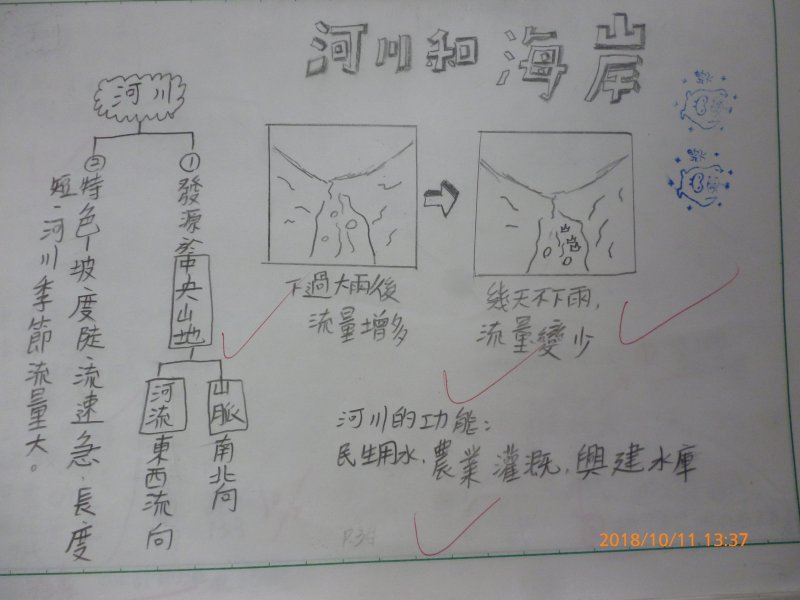 河川和海岸
河川
①發源於中央山地
山脈南北向
河流東西流向
②特色-坡度陡、流速急、長度
短、河川季節流量大。
下過大雨後
流量增多
幾天不下雨,
流量變少
河川的功能:
民生用水、農業灌溉、興建水庫
P.34
2018/10/11 13:37